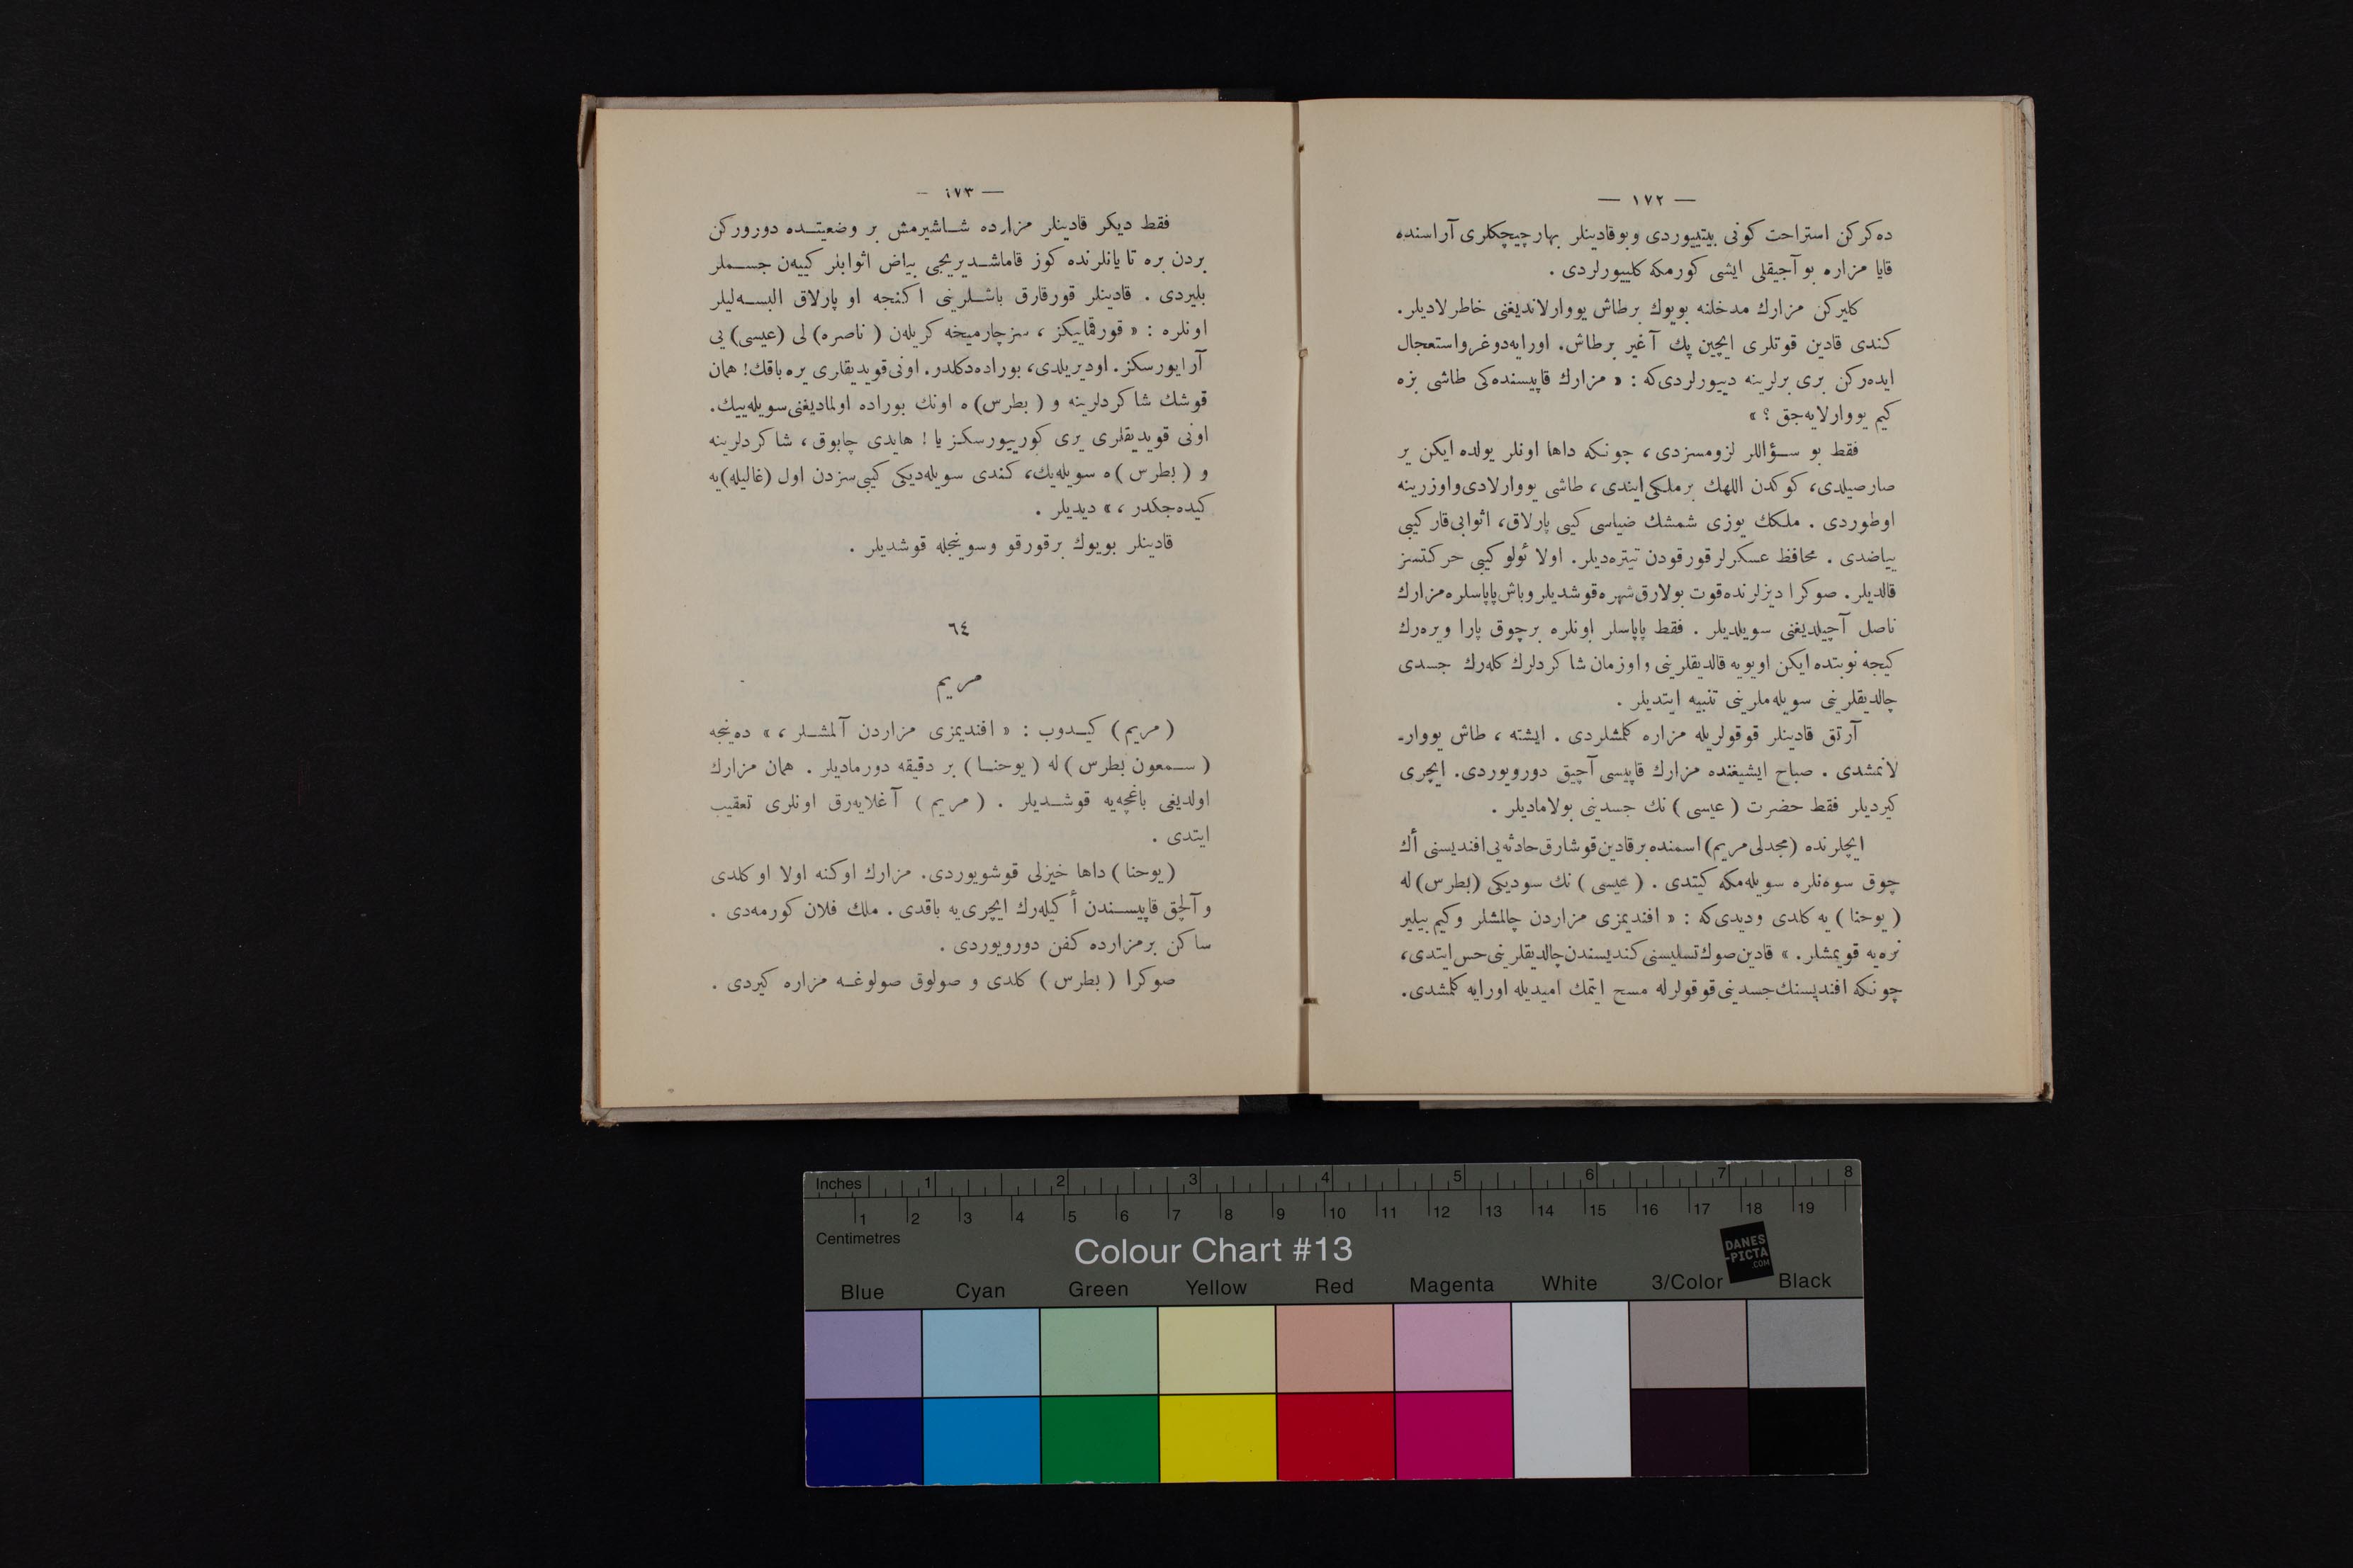 — ١٧٢ —
ده‌کرکن استراحت کونی بیتییوردی وبوقادینلر بهارچیچکلری آراسنده
قایا مزاره بو آجیقلی ایشی کورمکه کلییورلردی .
کلیرکن مزارك مدخلنه بویوك برطاش یووارلاندیغنی خاطرلادیلر.
کندی قادین قوتلری ایچین پك آغیر برطاش. اورایه‌دوغرواستعجال
ایده‌رکن بری برلرینه دییورلردی‌که : « مزارك قاپیسنده‌کی طاشی بزه
کیم یووارلایه‌جق ؟ »
فقط بو سؤاللر لزومسزدی ، چونکه داها اونلر یولده ایکن یر
صارصیلدی، کوکدن اللهك برملکی‌ایندی ، طاشی یووارلادی‌واوزرینه
اوطوردی . ملکك یوزی شمشك ضیاسی کیبی پارلاق، اثوابی‌قار کیبی
بیاضدی . محافظ عسکرلر قورقودن تیتره‌دیلر. اولا ئولو کیبی حرکتسز
قالدیلر. صوکرا دیزلرنده‌قوت بولارق‌شهره‌قوشدیلر وباش‌پاپاسلره‌مزارك
ناصل آچیلدیغنی سویلدیلر . فقط پاپاسلر اونلره برچوق پارا ویره‌رك
کیجه نوبتده ایکن اویویه قالدیقلرینی واوزمان شاکردلرك کله‌رك جسدی
چالدیقلرینی سویله‌ملرینی تنبیه ایتدیلر .
آرتق قادینلر قوقولریله مزاره کلمشلردی . ایشته ، طاش یووار-
لانمشدی . صباح ایشیغنده مزارك قاپیسی آچیق دورویوردی. ایچری
کیردیلر فقط حضرت ( عیسی ) نك جسدینی بولامادیلر .
ایچلرنده (مجدلی مریم) اسمنده برقادین‌قوشارق‌حادثه‌یی‌افندیسنی أك
چوق سوه‌نلره سویله‌مکه کیتدی . ( عیسی ) نك سودیکی (بطرس) له
( یوحنا ) یه کلدی ودیدی‌که : « افندیمزی مزاردن چالمشلر وکیم بیلیر
نره‌یه قویمشلر. » قادین‌صوك‌تسلیسنی‌کندیسندن‌چالدیقلرینی‌حس‌ایتدی،
چونکه افندیسنك‌جسدینی‌قوقولرله مسح ایتمك امیدیله اورایه کلمشدی.
— ١٧٣ —
فقط دیکر قادینلر مزارده شاشیرمش بر وضعیتده دورورکن
بردن بره تا یانلرنده کوز قاماشدیریجی بیاض اثوابلر کییه‌ن جسملر
بلیردی . قادینلر قورقارق باشلرینی اکنجه او پارلاق البسه‌لیلر
اونلره : « قورقماییکز ، سزچارمیخه کریله‌ن ( ناصره) لی (عیسی) یی
آرایورسکز. اودیریلدی، بوراده‌دکلدر. اونی‌قویدیقلری یره باقك! همان
قوشك شاکردلرینه و ( بطرس) ه اونك بوراده اولمادیغنی‌سویله‌ییك.
اونی قویدیقلری یری کورییورسکز یا ! هایدی چابوق ، شاکردلرینه
و ( بطرس ) ه سویله‌یك، کندی سویله‌دیکی کیبی‌سزدن اول (غالیله)یه
کیده‌جکدر ، » دیدیلر .
قادینلر بویوك برقورقو وسوینجله قوشدیلر .
٦٤
مریم
( مریم ) کیدوب : « افندیمزی مزاردن آلمشلر ، » ده‌ینجه
( سمعون بطرس ) له ( یوحنا ) بر دقیقه دورمادیلر . همان مزارك
اولدیغی باغچه‌یه قوشدیلر . ( مریم ) آغلایه‌رق اونلری تعقیب
ایتدی .
(یوحنا ) داها خیزلی قوشویوردی. مزارك اوکنه اولا او کلدی
وآلچق قاپیسندن أکیله‌رك ایچری‌یه باقدی . ملك فلان کورمه‌دی .
ساکن برمزارده کفن دورویوردی .
صوکرا ( بطرس ) کلدی و صولوق صولوغه مزاره کیردی .
Inches 1 2 3 4 5 6 7 8
1 2 3 4 5 6 7 8 9 10 11 12 13 14 15 16 17 18 19
Centimetres
Colour Chart #13
DANES
-PICTA
.COM
Blue Cyan Green Yellow Red Magenta White 3/Color Black